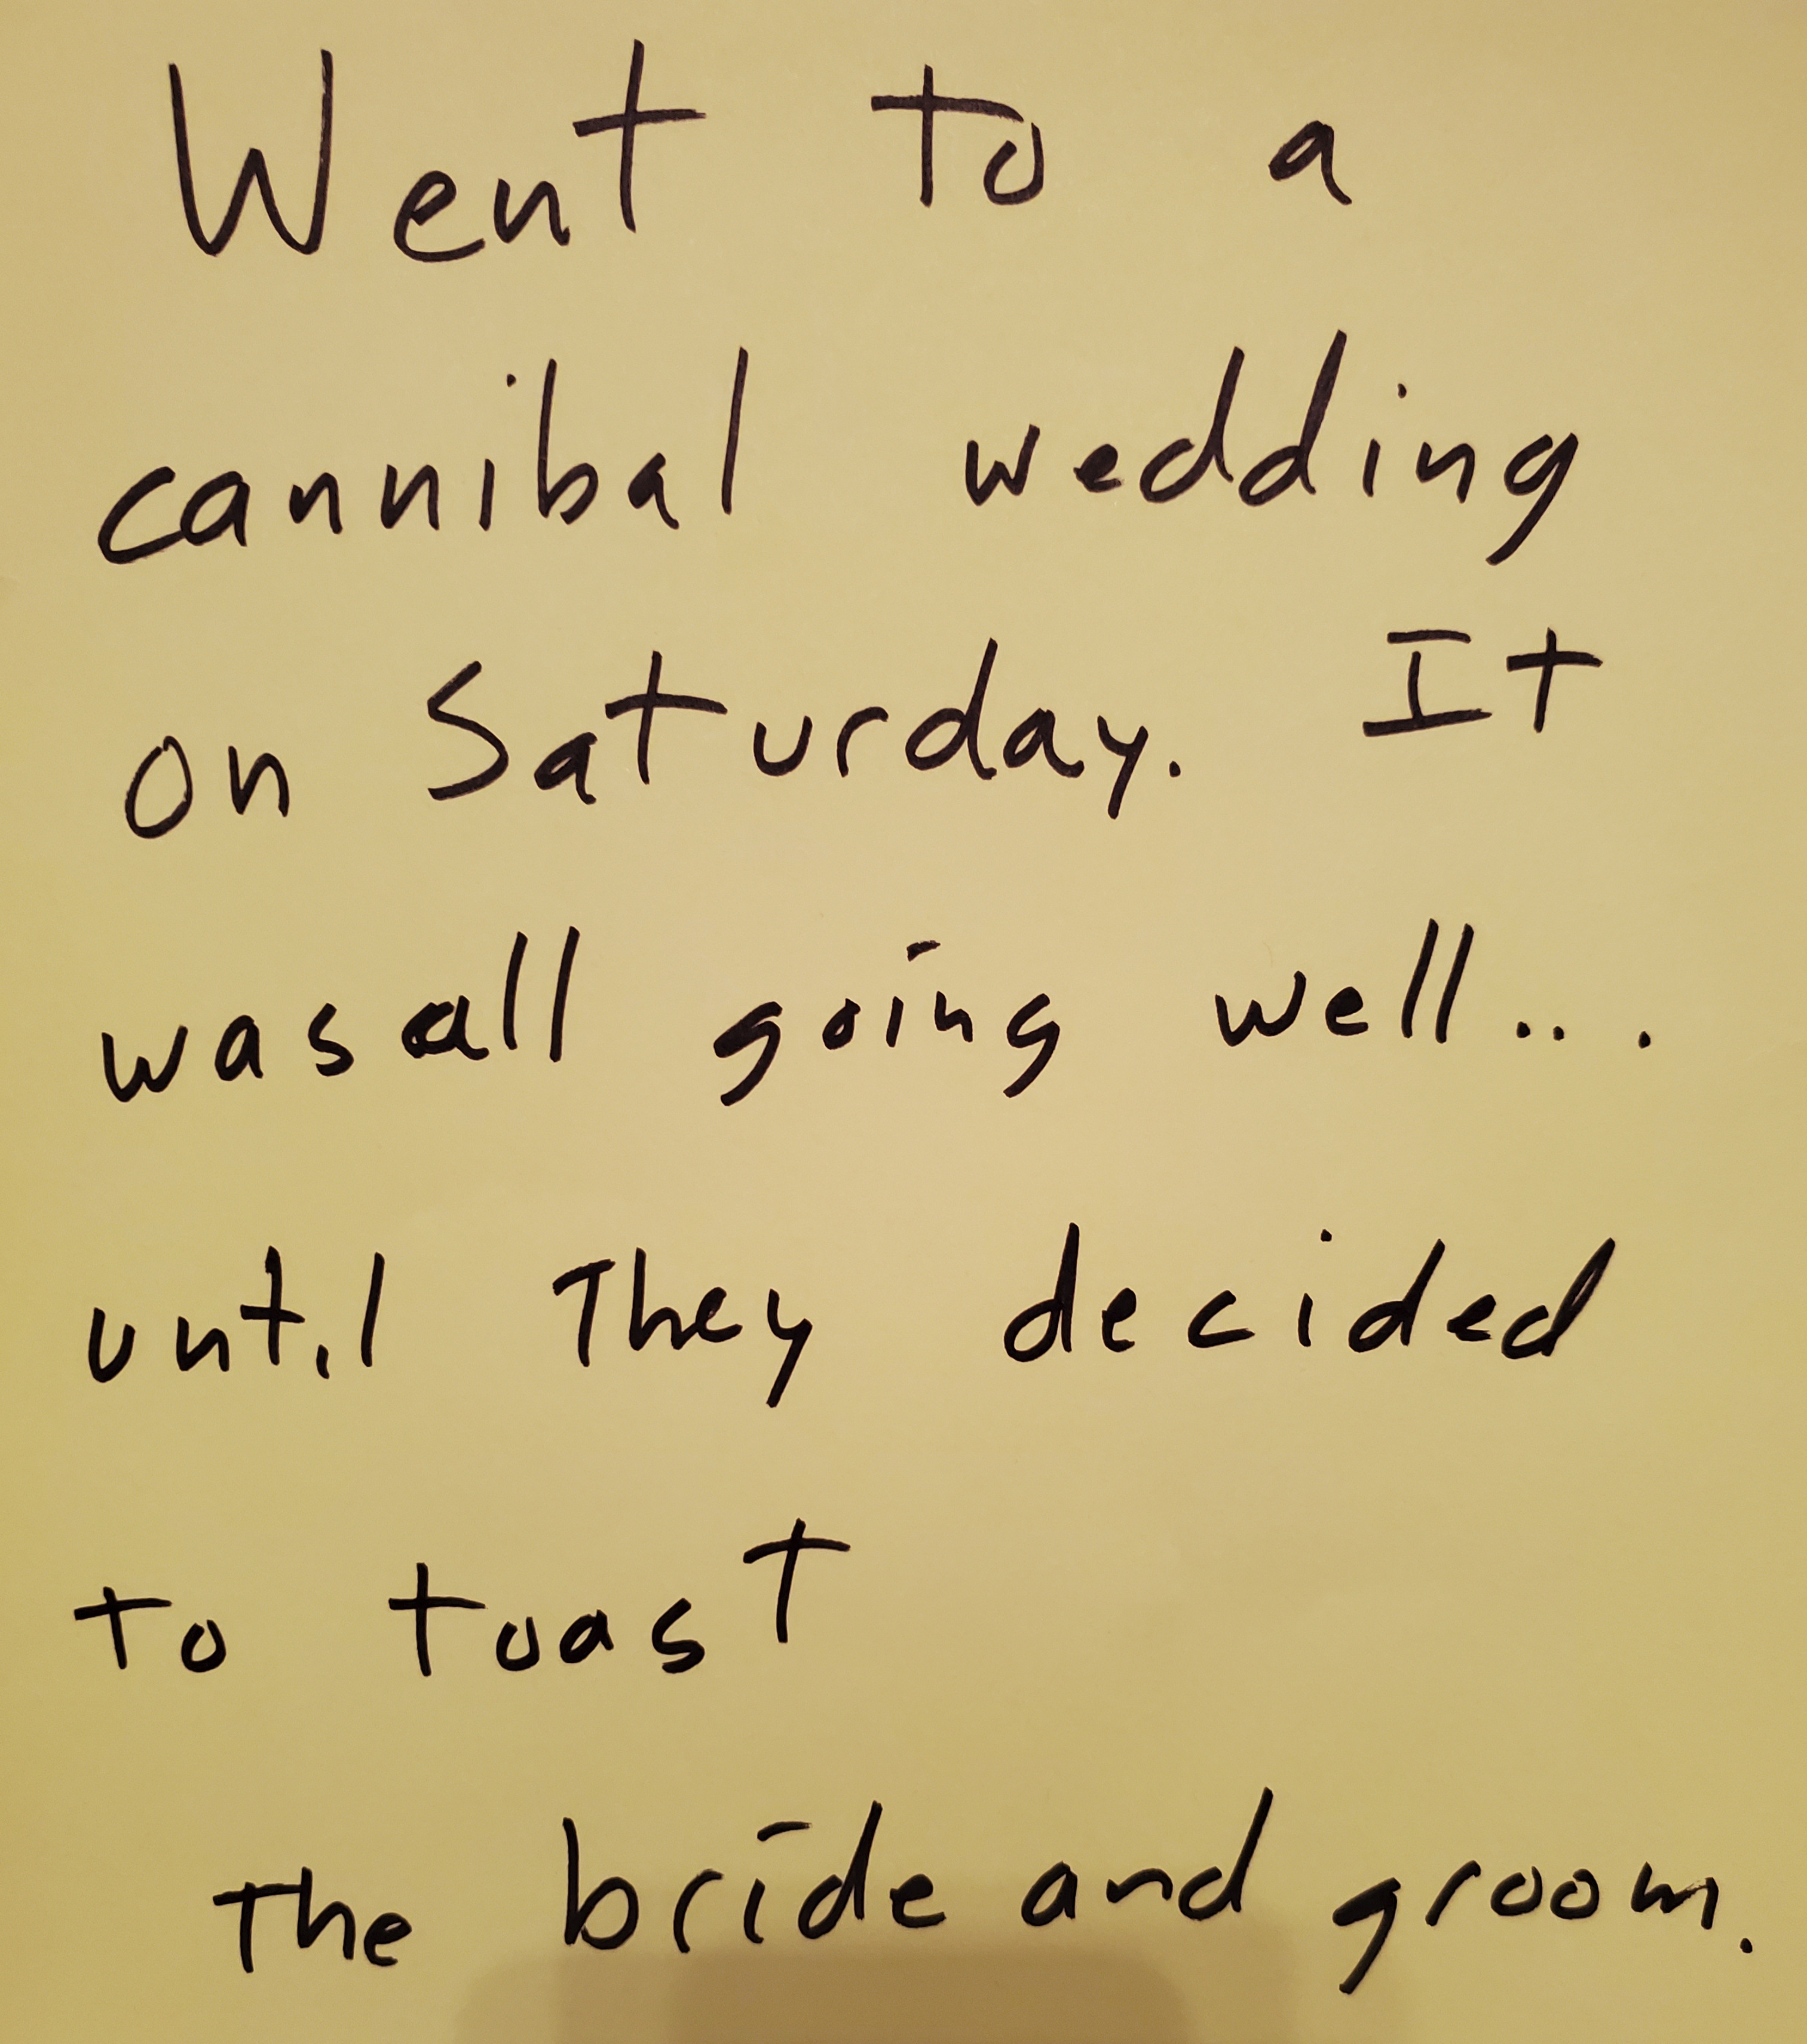 Went to a
cannibal wedding
on Saturday. It
was all going well...
until they decided
to toast
the bride and groom.